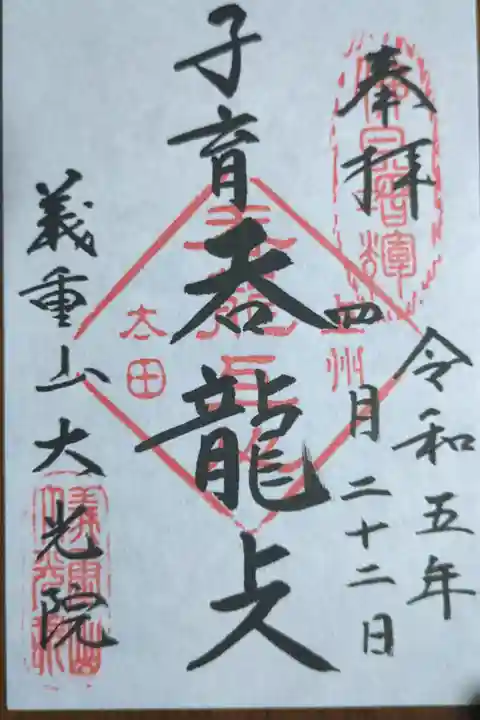 奉拝
令和五年
四月二十二日
上州
子育呑龍上人
太田
義重山大光院